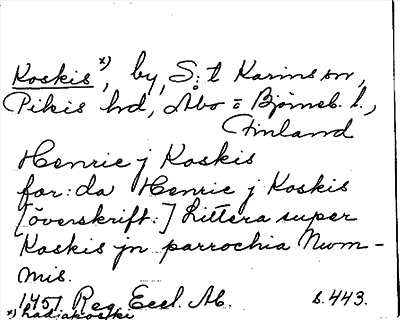 Koskis x), by, S:t Karins sn,
Pikis hd, Åbo = Björneb. l.,
Finland
Henric j Koskis
for: da Henric j Koskis
[överskrift:] Littera super
Koskis jn parrochia Num-
mis.
1451 Reg Eccl. Ab. s. 443.
x) hadjakoski